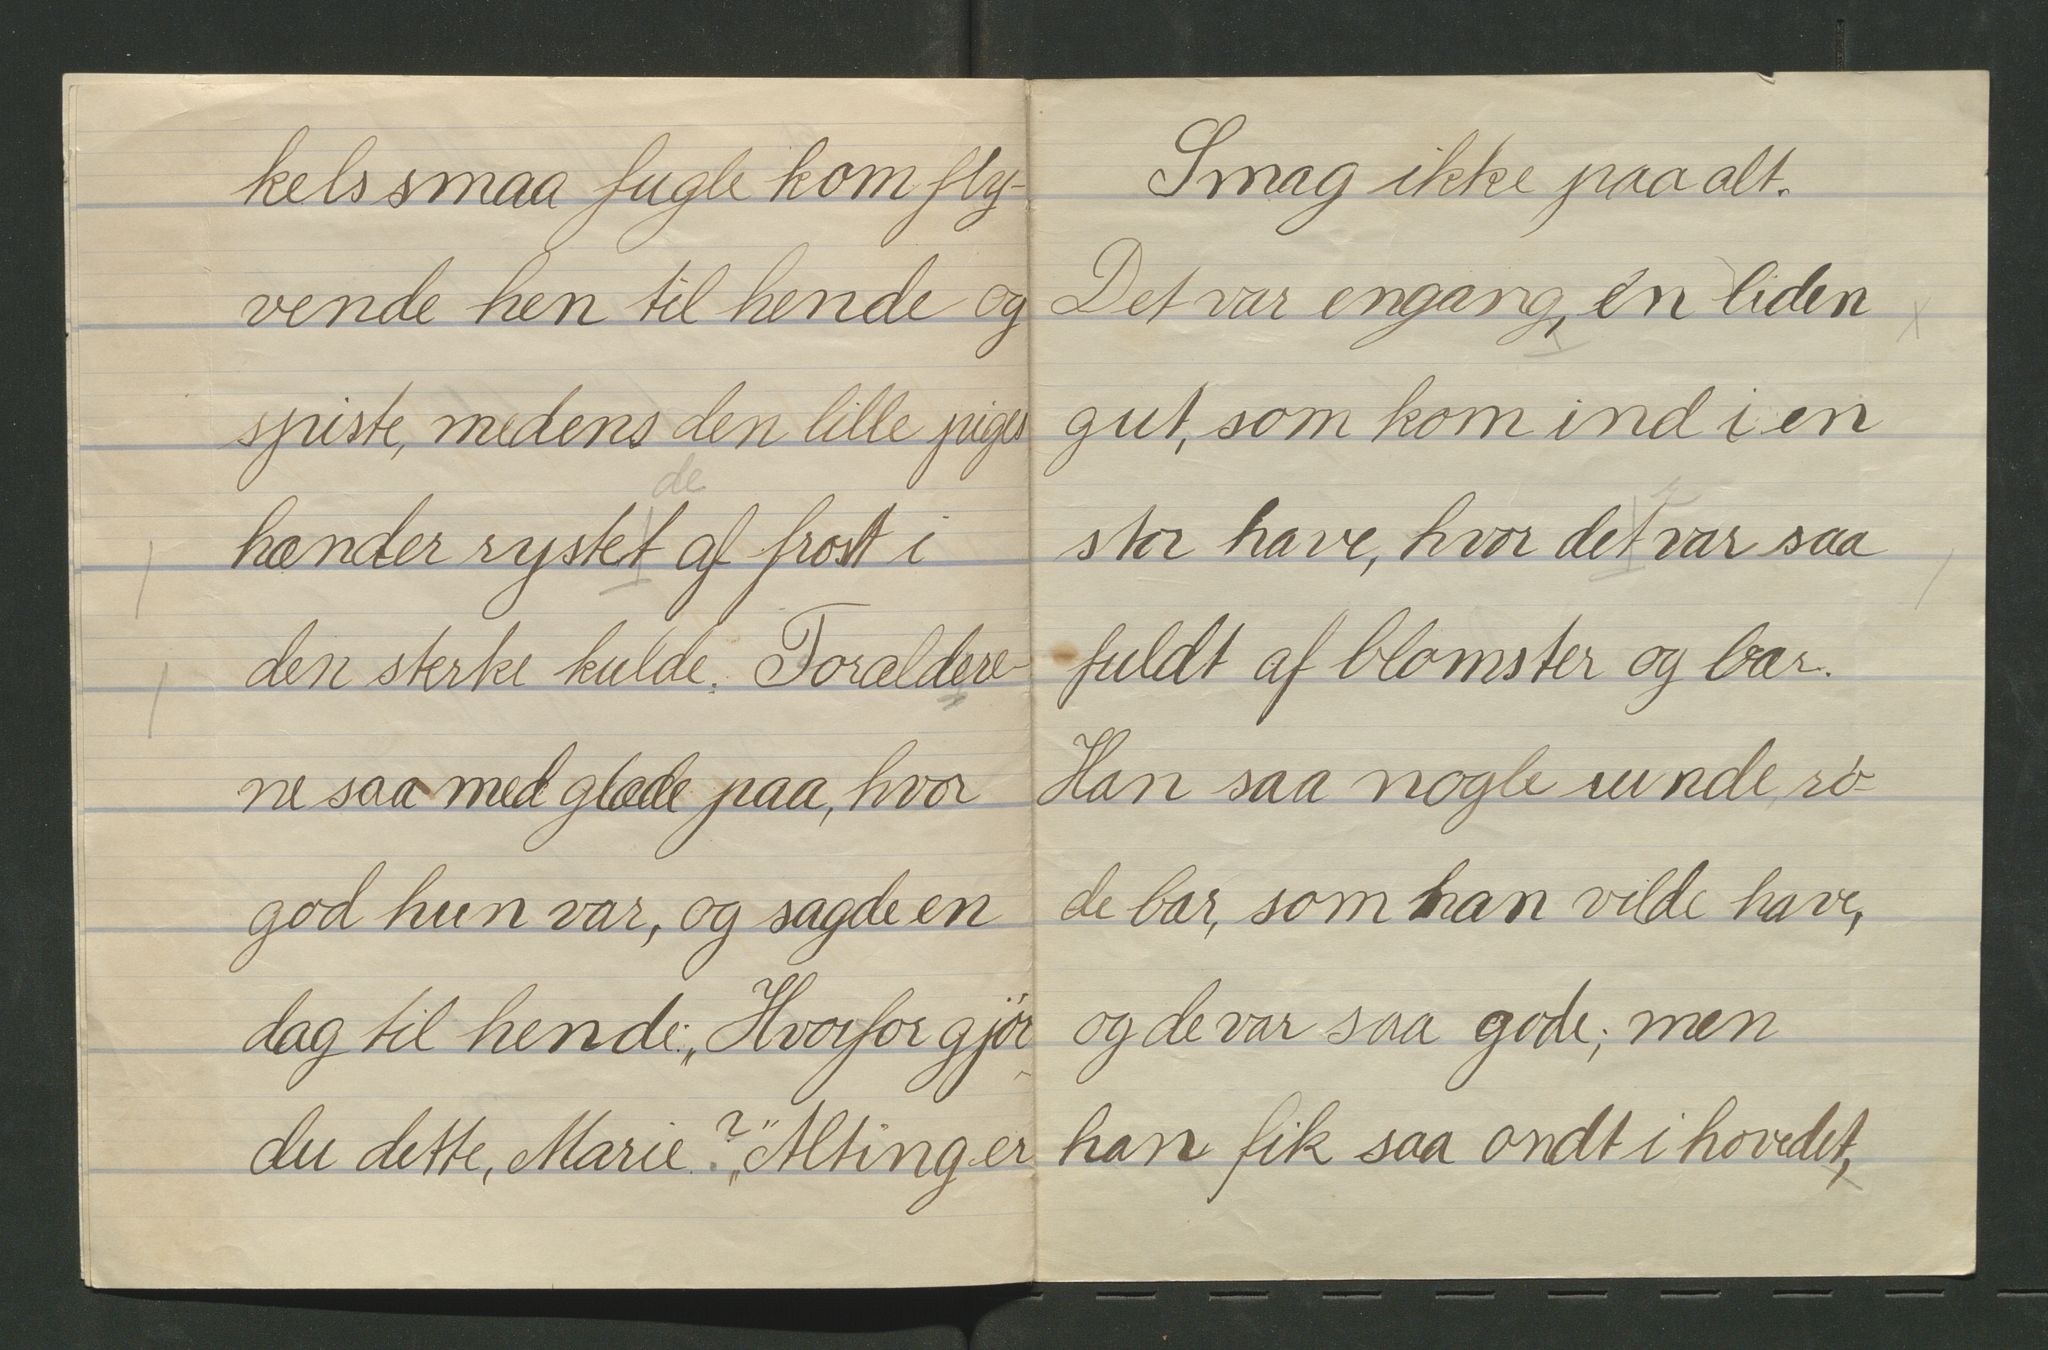 kels smaa fugle kom fly-
vende hen til hende og
spiste, medens den lille piges
de
hænder rystet af frost i
den sterke kulde. Forældere-
ne saa med glæde paa, hvor
god hun var, og sagde en
dag til hende: „Hvorfor gjør
du dette, Marie?" „Alting er
Smag ikke paa alt.
Det var engang, én liden
gut, som kom ind i en
stor have, hvor det var saa
fuldt af blomster og bær.
Han saa nogle runde, rø-
de bær, som han vilde have,
og de var saa gode; men
han fik saa ondt i hovedet,